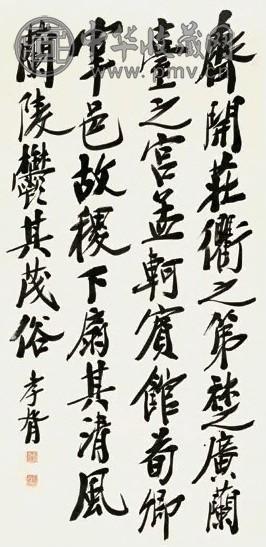 齊開莊衢之第楚廣蘭
臺之宮孟軻賓館荀卿
宰邑故稷下扇其清風
蘭陵鬱其茂俗
孝胥
中华收藏网